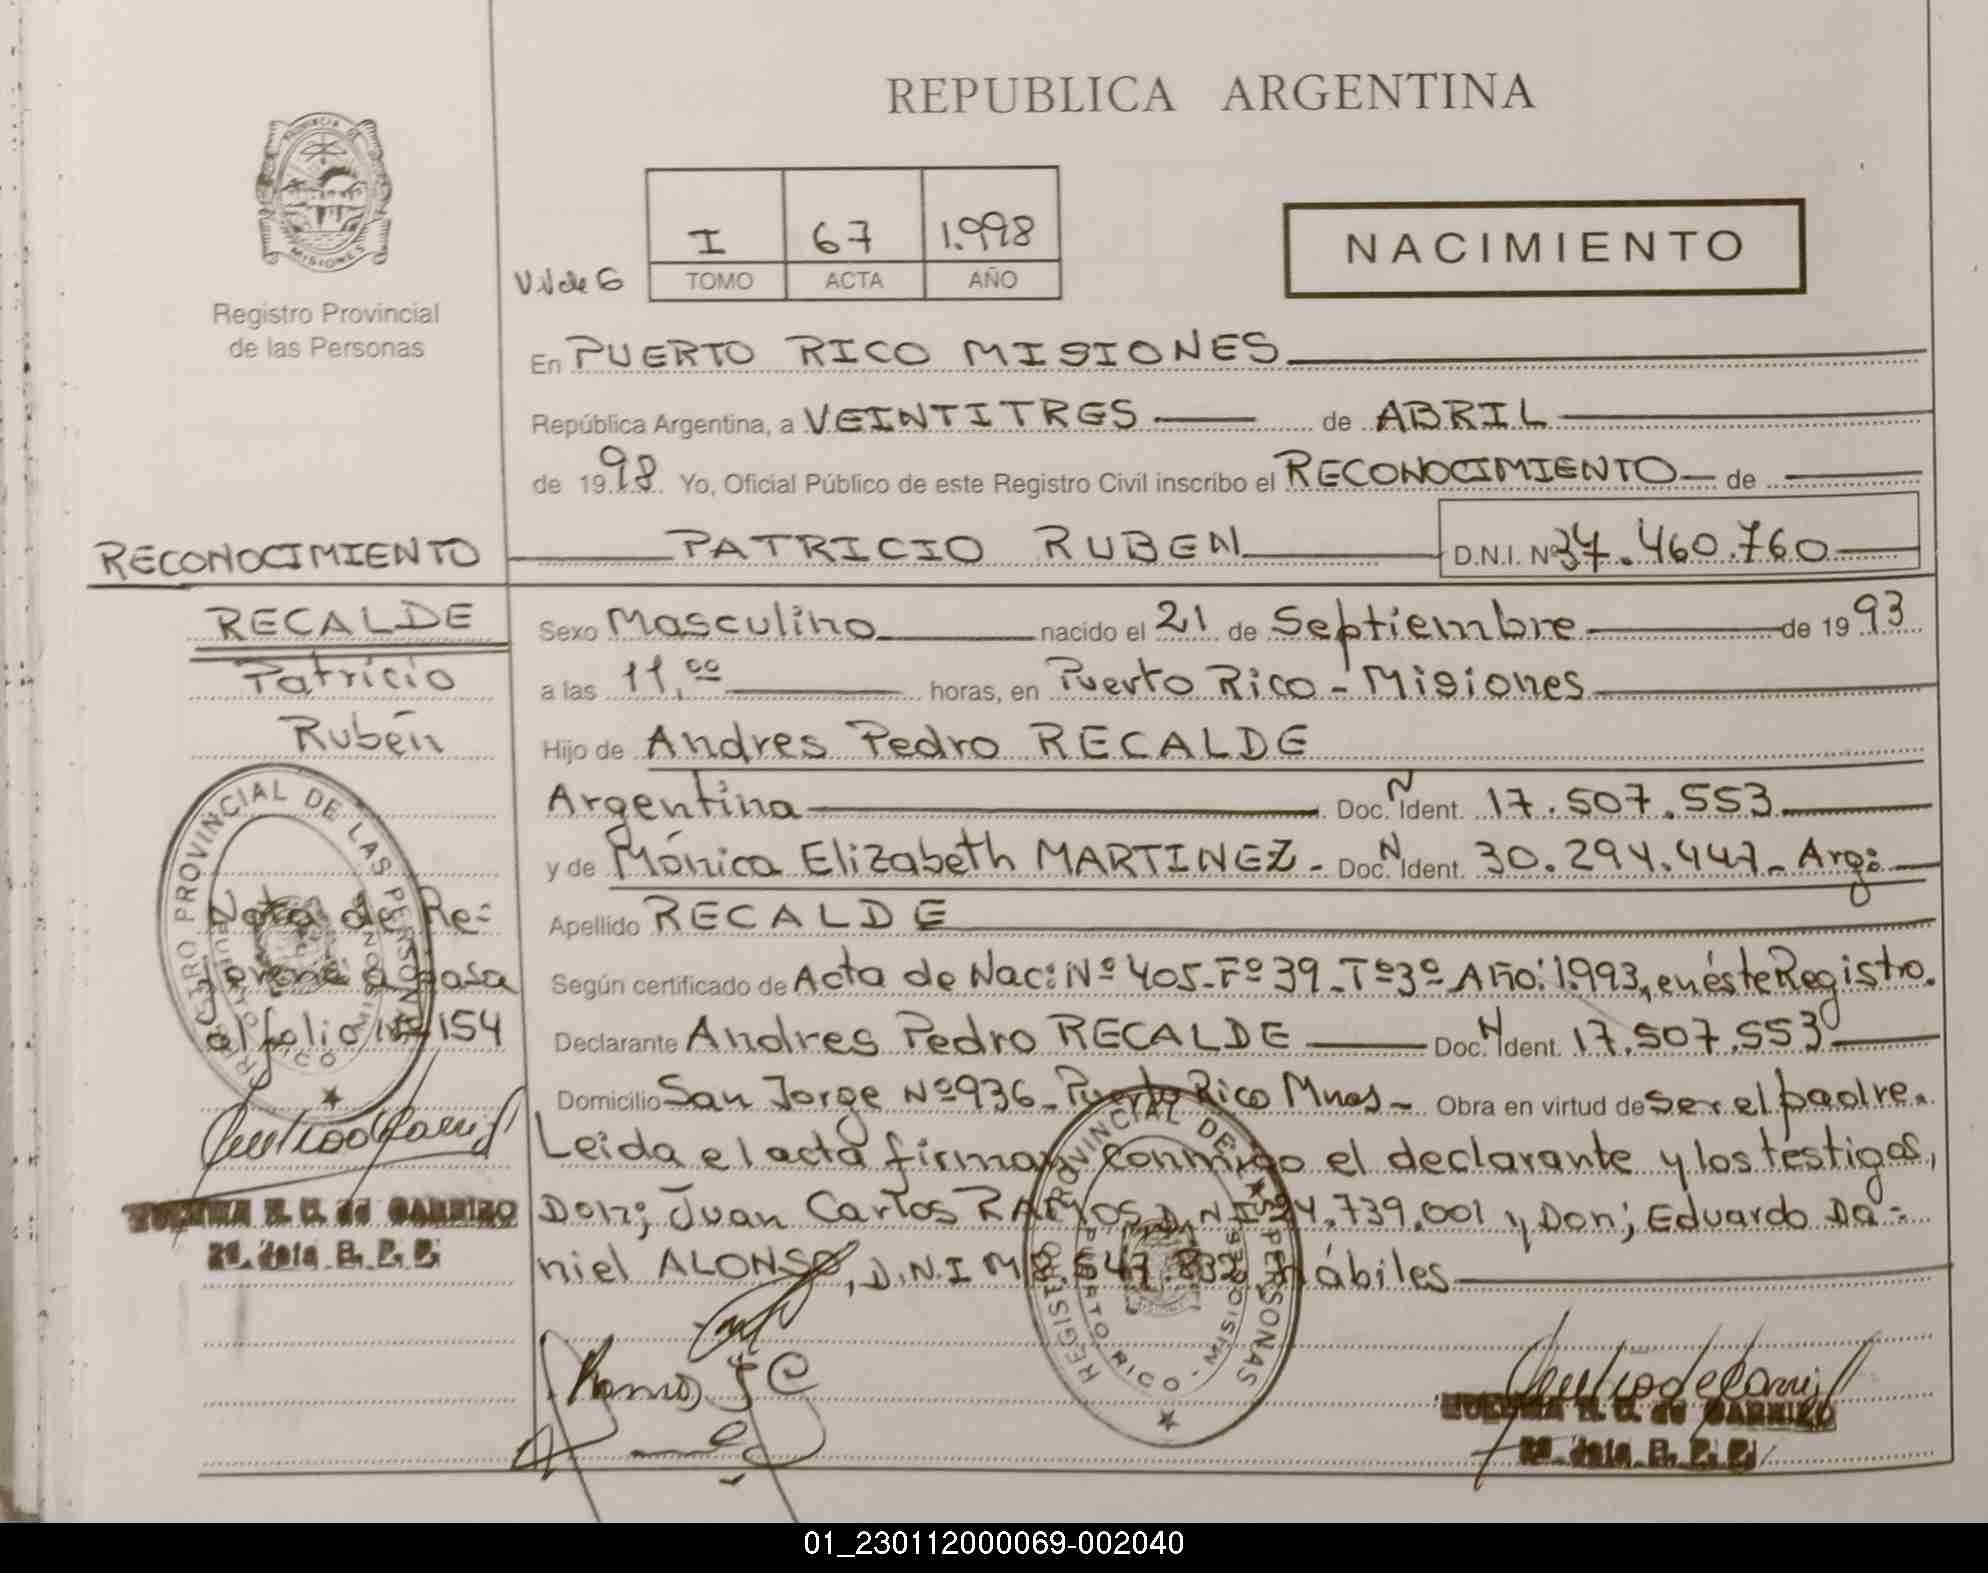 REPUBLICA ARGENTINA
PROVINCIA DE MISIONES
Registro Provincial
de las Personas
I 67 1.998
TOMO ACTA AÑO
NACIMIENTO
En PUERTO RICO MISIONES
República Argentina, a VEINTITRES de ABRIL
de 1998 Yo, Oficial Público de este Registro Civil inscribo el RECONOCIMIENTO de
PATRICIO RUBEN D.N.I. Nº 37.460.760
RECONOCIMIENTO
RECALDE
Patricio
Rubén
Nota de Re=
ferencia pasa
al folio Nº 154
REGISTRO PROVINCIAL DE LAS PERSONAS
PUERTO RICO - MISIONES
Sexo Masculino nacido el 21 de Septiembre de 1993
a las 11,00 horas, en Puerto Rico - Misiones
Hijo de Andres Pedro RECALDE
Argentina Doc. N Ident. 17.507.553
y de Mónica Elizabeth MARTINEZ - Doc. N Ident. 30.294.447 - Arg:
Apellido RECALDE
Según certificado de Acta de Nac: Nº 405 - Fº 39 - Tº 3º Año: 1.993, en éste Registro.
Declarante Andres Pedro RECALDE Doc. N Ident. 17.507.553
Domicilio San Jorge Nº 936 - Puerto Rico Mnes - Obra en virtud de ser el padre.
Leida el acta firman conmigo el declarante y los testigos,
Don; Juan Carlos RAMOS D.N.I 24.739.001 y Don; Eduardo Da-
niel ALONSO, D.N.I M 8.547.832 hábiles
REGISTRO PROVINCIAL DE LAS PERSONAS
PUERTO RICO - MISIONES
Ramos J C
01_230112000069-002040